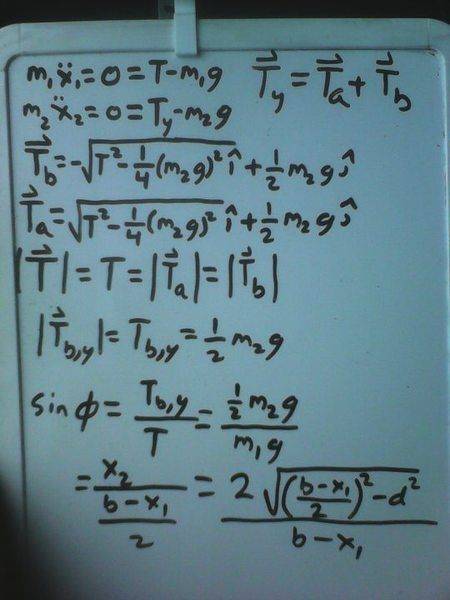 m₁ẍ₁=0=T-m₁g T⃗y=T⃗a+T⃗b
m₂ẍ₂=0=Ty-m₂g
T⃗b=-√(T²-¼(m₂g)²) î+½m₂g ĵ
T⃗a=√(T²-¼(m₂g)²) î+½m₂g ĵ
|T⃗|=T=|T⃗a|=|T⃗b|
|T⃗b,y|=Tb,y=½m₂g
sin ϕ=Tb,y/T=½m₂g/m₁g
=x₂/((b-x₁)/2)=2√(((b-x₁)/2)²-d²)/(b-x₁)